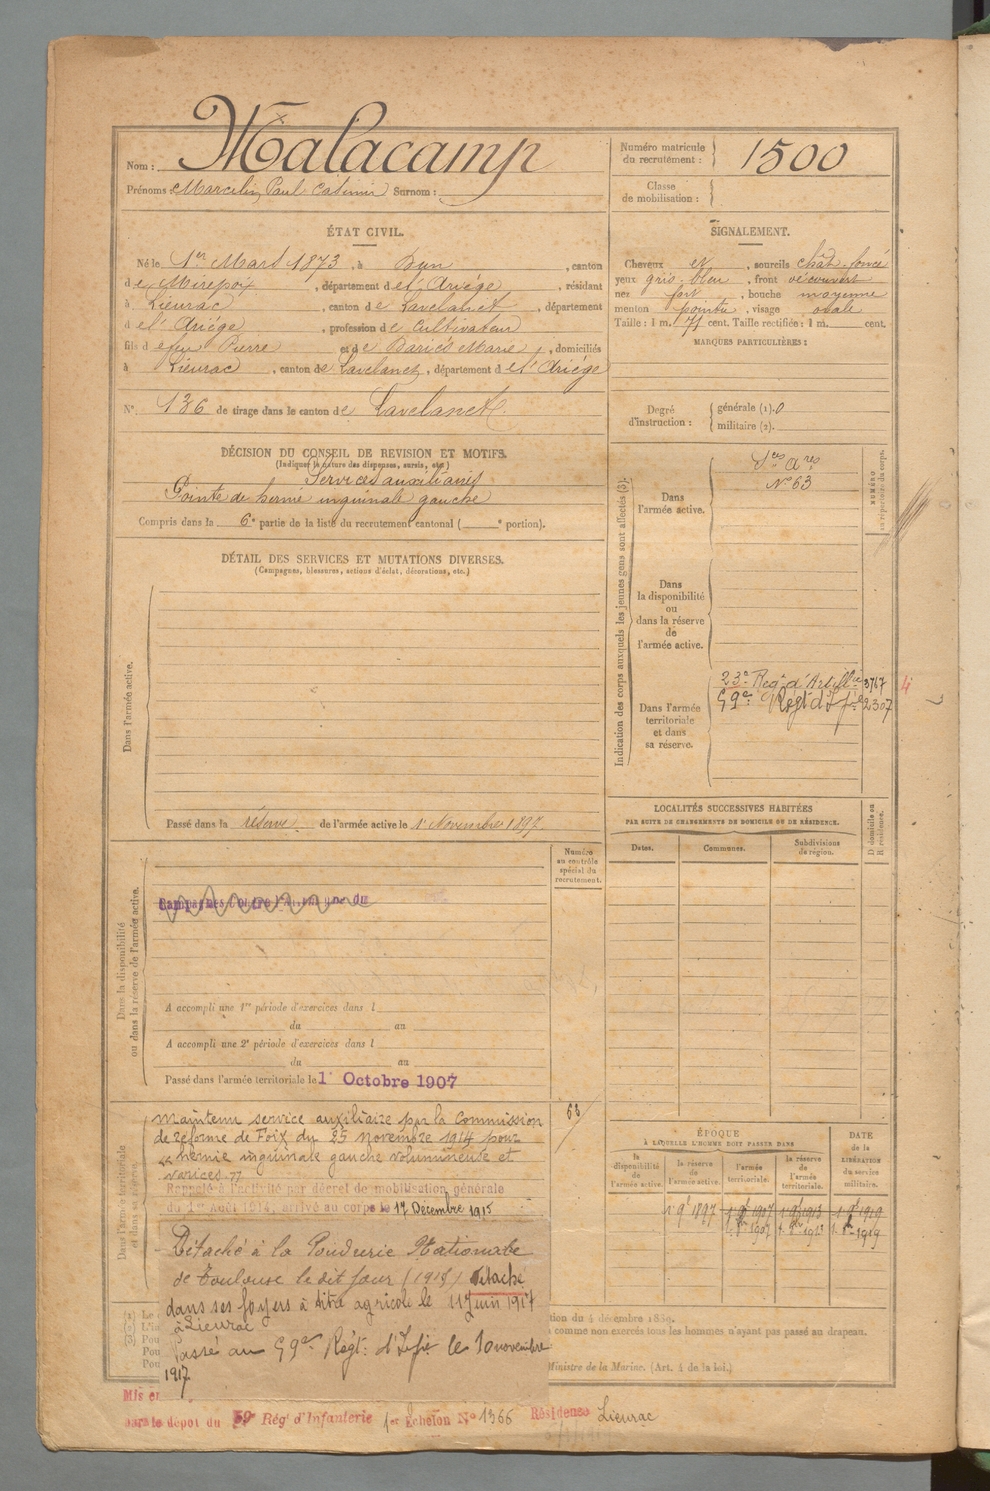 Nom : Malacamp
Prénoms : Marcelin Paul Casimir Surnom :
Numéro matricule du recrutement : 1500
Classe de mobilisation :
ÉTAT CIVIL.
Né le 1er Mars 1873, à Dun, canton
de Mirepoix, département de l'Ariège, résidant
à Lieurac, canton de Lavelanet, département
d e l'Ariège, profession de Cultivateur
fils de feu Pierre et de Bariés Marie, domiciliés
à Lieurac, canton de Lavelanet, département de l'Ariège
N° 136 de tirage dans le canton de Lavelanet
SIGNALEMENT.
Cheveux et, sourcils chât. foncé
yeux gris-bleu, front découvert
nez fort, bouche moyenne
menton pointu, visage ovale
Taille : 1 m. 71 cent. Taille rectifiée : 1 m. cent.
MARQUES PARTICULIÈRES :
Degré d'instruction : générale (1). 0
militaire (2).
DÉCISION DU CONSEIL DE REVISION ET MOTIFS.
(Indiquer la nature des dispenses, sursis, etc.)
Services auxiliaires
Pointe de hernie inguinale gauche
Compris dans la 6e partie de la liste du recrutement cantonal ( e portion).
DÉTAIL DES SERVICES ET MUTATIONS DIVERSES.
(Campagnes, blessures, actions d'éclat, décorations, etc.)
Dans l'armée active.
Passé dans la réserve de l'armée active le 1r Novembre 1897
Indication des corps auxquels les jeunes gens sont affectés (3).
NUMÉRO au répertoire du corps.
Dans l'armée active.
Sces Ares
N° 63
Dans la disponibilité ou dans la réserve de l'armée active.
Dans l'armée territoriale et dans sa réserve.
23e Regt d'Artillie 3767
59e Regt d'Infie 2307
LOCALITÉS SUCCESSIVES HABITÉES
PAR SUITE DE CHANGEMENTS DE DOMICILE OU DE RÉSIDENCE.
Dates. Communes. Subdivisions de région. D domicile ou R résidence.
Numéro au contrôle spécial du recrutement.
Dans la disponibilité ou dans la réserve de l'armée active.
Campagnes contre l'Allemagne du
A accompli une 1re période d'exercices dans l
du au
A accompli une 2e période d'exercices dans l
du au
Passé dans l'armée territoriale le 1r Octobre 1907
Dans l'armée territoriale et dans sa réserve.
maintenu service auxiliaire par la Commission
de réforme de Foix du 25 novembre 1914 pour
"hernie inguinale gauche volumineuse et
varices"
Rappelé à l'activité par décret de mobilisation générale
du 1er Août 1914, arrivé au corps le 17 Décembre 1915
Détaché à la Poudrerie Nationale
de Toulouse le dit jour (1915) Détaché
dans ses foyers à titre agricole le 11 juin 1917
à Lieurac
Passé au 59e Regt d'Infie le 10 novembre
1917
63
ÉPOQUE
À LAQUELLE L'HOMME DOIT PASSER DANS
la disponibilité de l'armée active. la réserve de l'armée active. l'armée territoriale. la réserve de l'armée territoriale.
DATE de la LIBÉRATION du service militaire.
1r 9bre 1897 1r 9bre 1907 1r 9bre 1913 1r 9bre 1919
1r 8bre 1907 1r 8bre 1913 1r 8bre 1919
comme non exercés tous les hommes n'ayant pas passé au drapeau.
Ministre de la Marine. (Art. 4 de la loi.)
Mis en
dans le dépôt du 59e Régt d'Infanterie 1er Échelon N° 1366 Résidence Lieurac